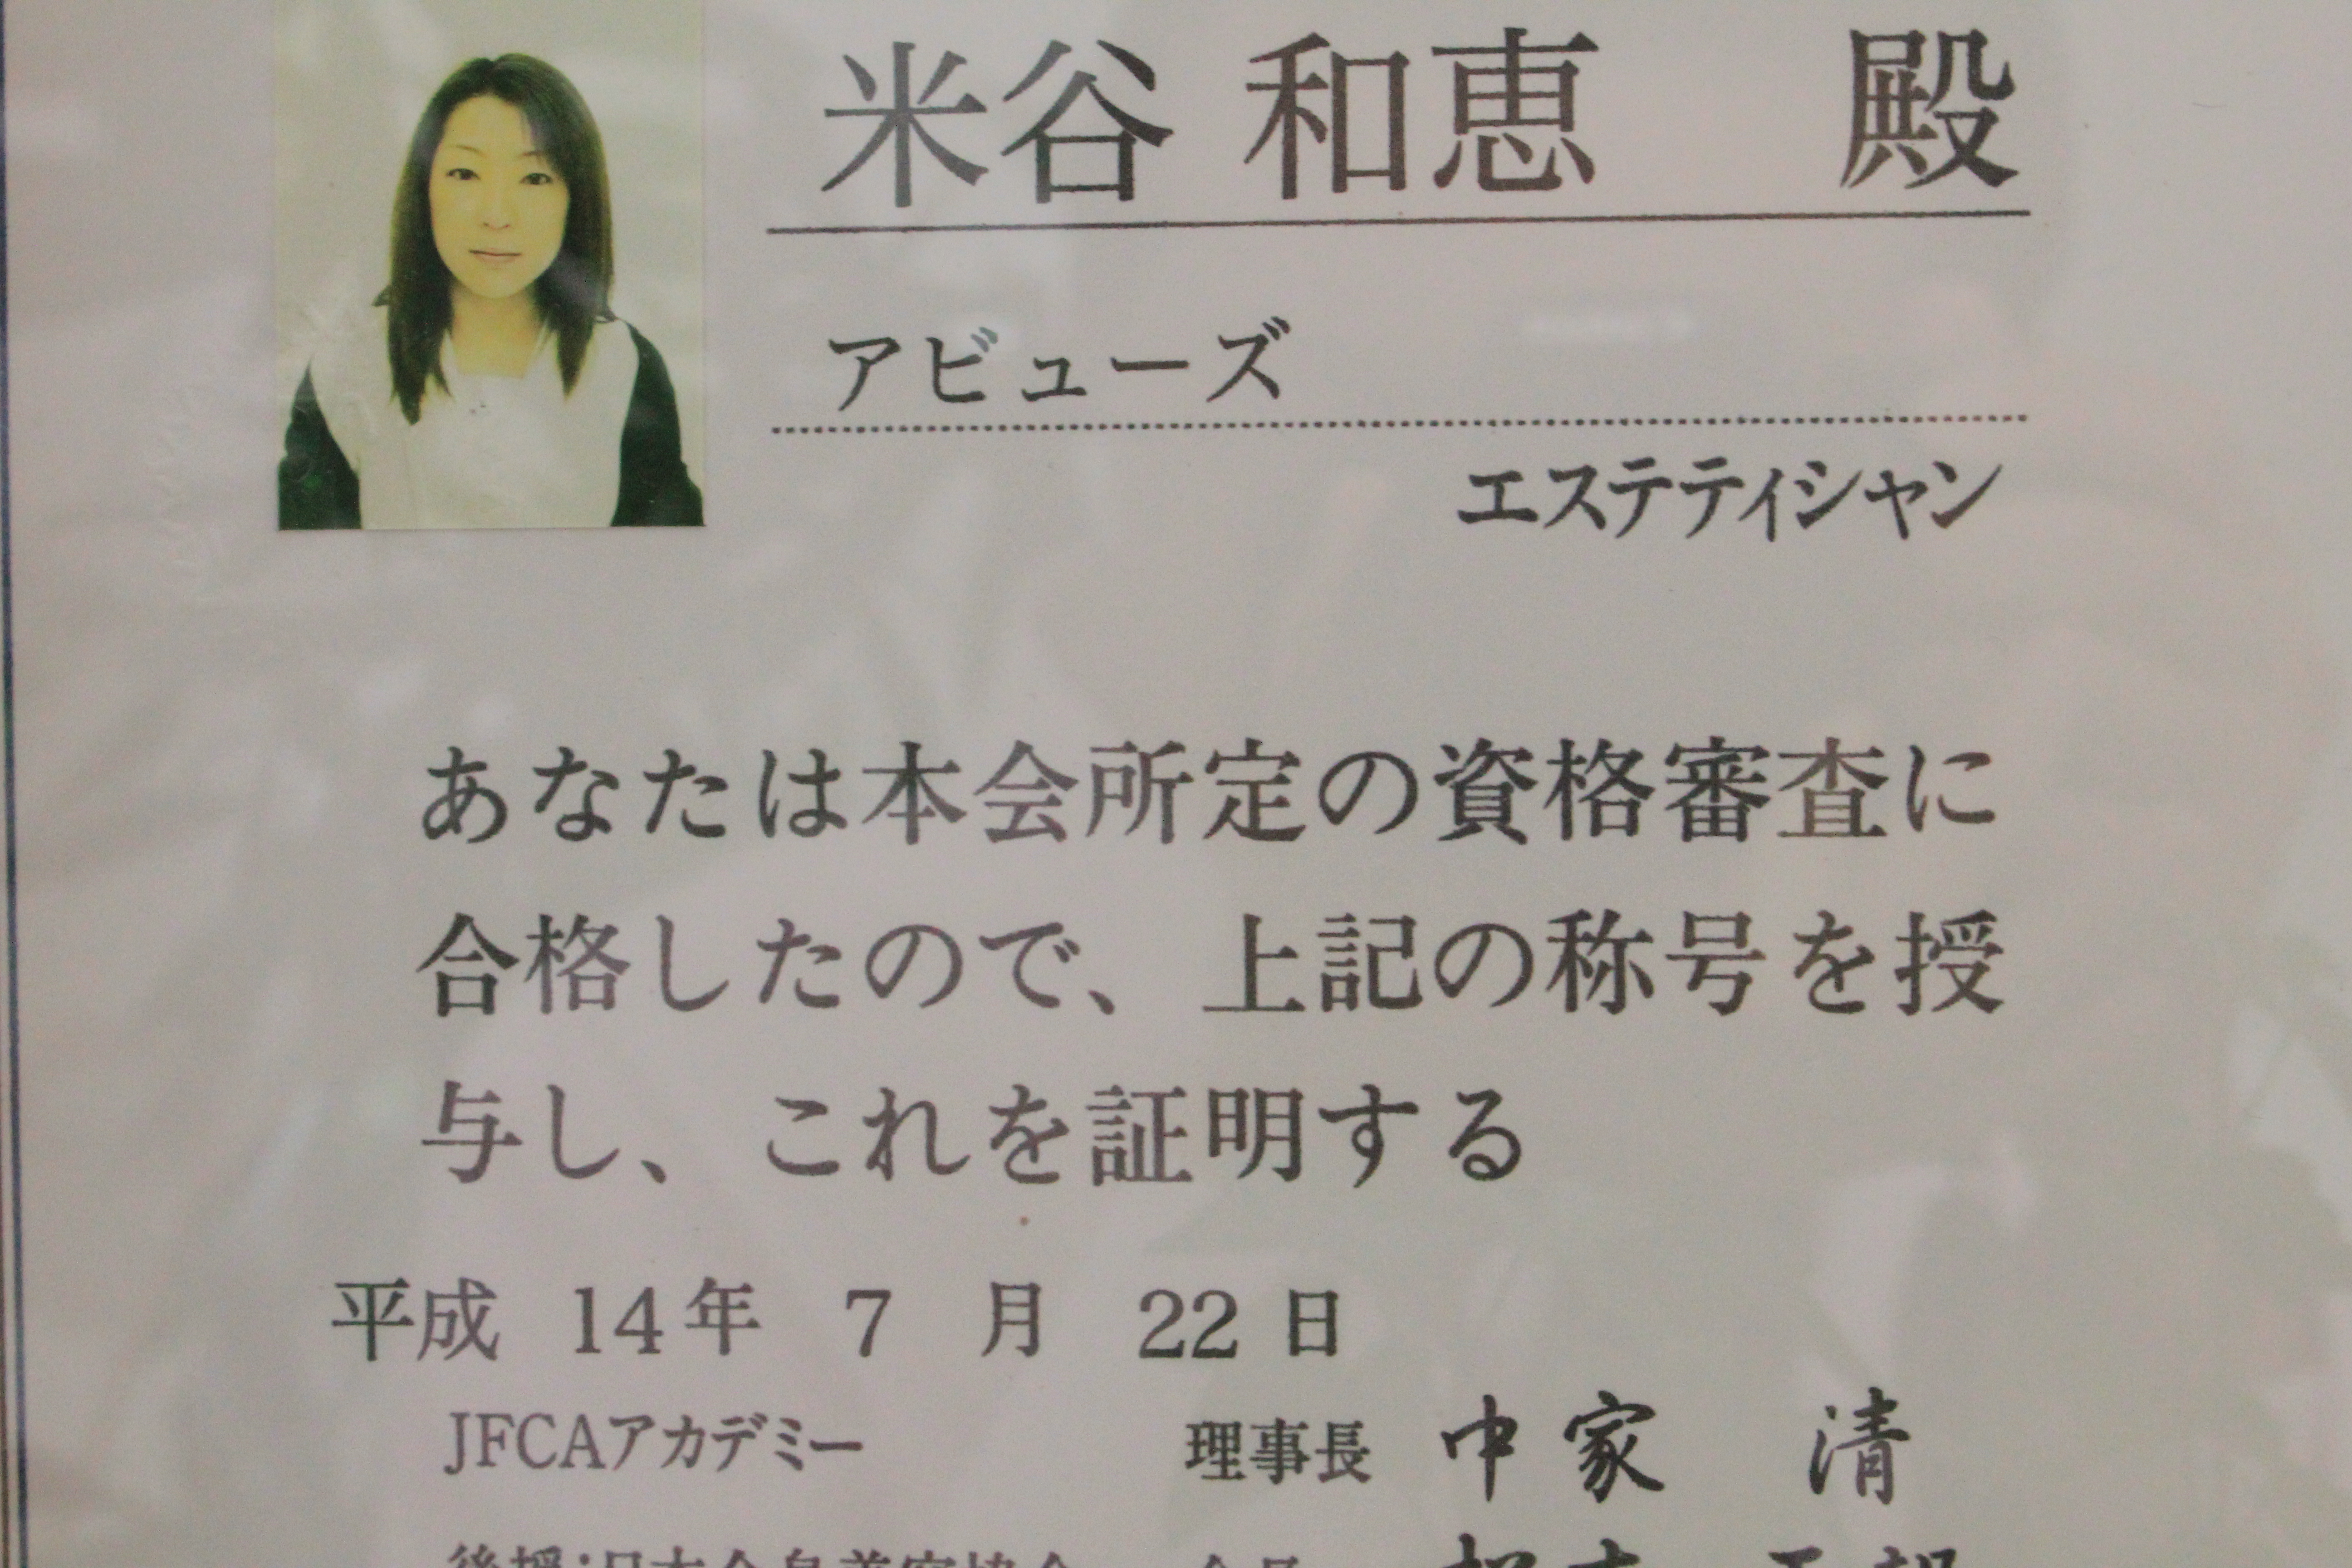 米谷 和恵 殿
アビューズ
エステティシャン
あなたは本会所定の資格審査に
合格したので、上記の称号を授
与し、これを証明する
平成 14年 7 月 22 日
JFCAアカデミー 理事長 中家 清